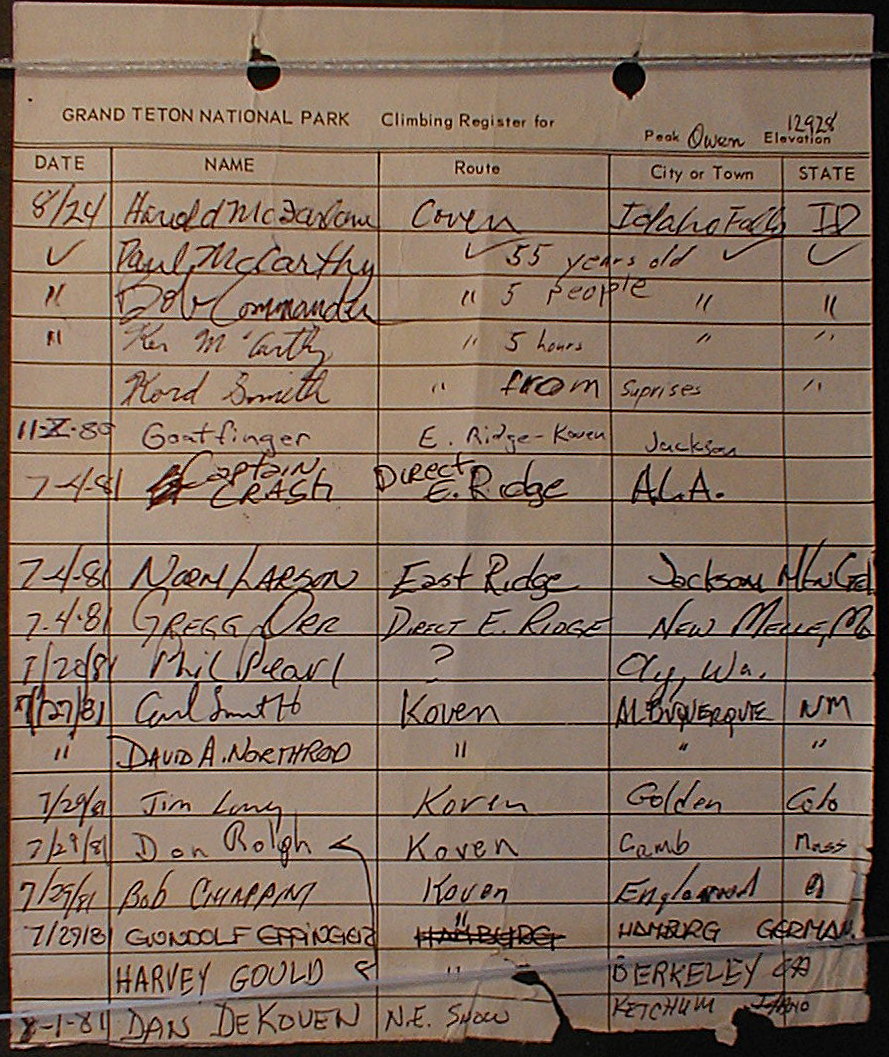 GRAND TETON NATIONAL PARK Climbing Register for Peak Owen Elevation 12928
DATE NAME Route City or Town STATE
8/24 Harold Coven Idaho Falls ID
✓ Paul McCarthy ✓ 55 years old ✓ ✓
" Bob Commander " 5 people " "
" Ken McCarthy " 5 hours " "
Kord Smith " from Suprises "
11-X-80 Goatfinger E. Ridge-Koven Jackson
7-4-81 Captain CRASH DIRECT E. Ridge A.L.A.
7-4-81 NORM LARSON East Ridge Jackson
7-4-81 GREGG ORR DIRECT E. RIDGE NEW MELLE, Mo
7/28/81 Phil Pearl ? Oly, Wa.
7/27/81 Carl Smith Koven ALBUQUERQUE NM
" DAVID A. NORTHROD " " "
7/29/81 Jim Koven Golden Colo
7/29/81 Don Rolph Koven Camb Mass
7/29/81 Bob CHIAPPINI Koven Englewood
7/29/81 GUNDOLF EPPINGER " HAMBURG HAMBURG GERMAN
HARVEY GOULD " BERKELEY CA
8-1-81 DAN DEKOVEN N.E. SNOW KETCHUM IDAHO